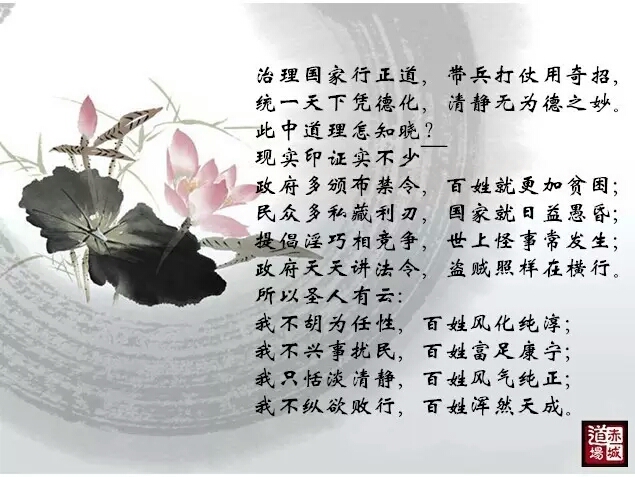 治理国家行正道，带兵打仗用奇招，
统一天下凭德化，清静无为德之妙。
此中道理怎知晓？
现实印证实不少——
政府多颁布禁令，百姓就更加贫困；
民众多私藏利刃，国家就日益愚昏；
提倡淫巧相竞争，世上怪事常发生；
政府天天讲法令，盗贼照样在横行。
所以圣人有云：
我不胡为任性，百姓风化纯淳；
我不兴事扰民，百姓富足康宁；
我只恬淡清静，百姓风气纯正；
我不纵欲败行，百姓浑然天成。
赤城
道場